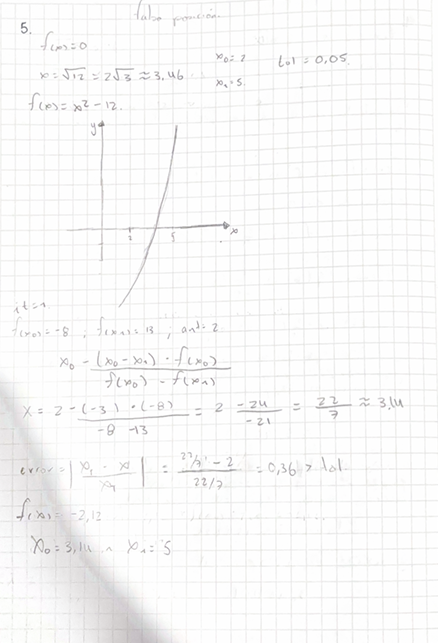 falsa posición
5.
f(x)=0
x=√12=2√3≈3,46
x₀=2
x₁=5
tol=0,05
f(x)=x²-12
y
2
5
x
it=1
f(x₀)=-8, f(x₁)=13, ant=2
x₀ - (x₀-x₁)·f(x₀) / f(x₀)-f(x₁)
x = 2 - (-3)·(-8) / -8 -13 = 2 -24 / -21 = 22/7 ≈ 3,14
error = | x₁ - x / x₁ | = 22/7 - 2 / 22/7 = 0,36 > tol
f(x)=-2,12
x₀=3,14 x₁=5